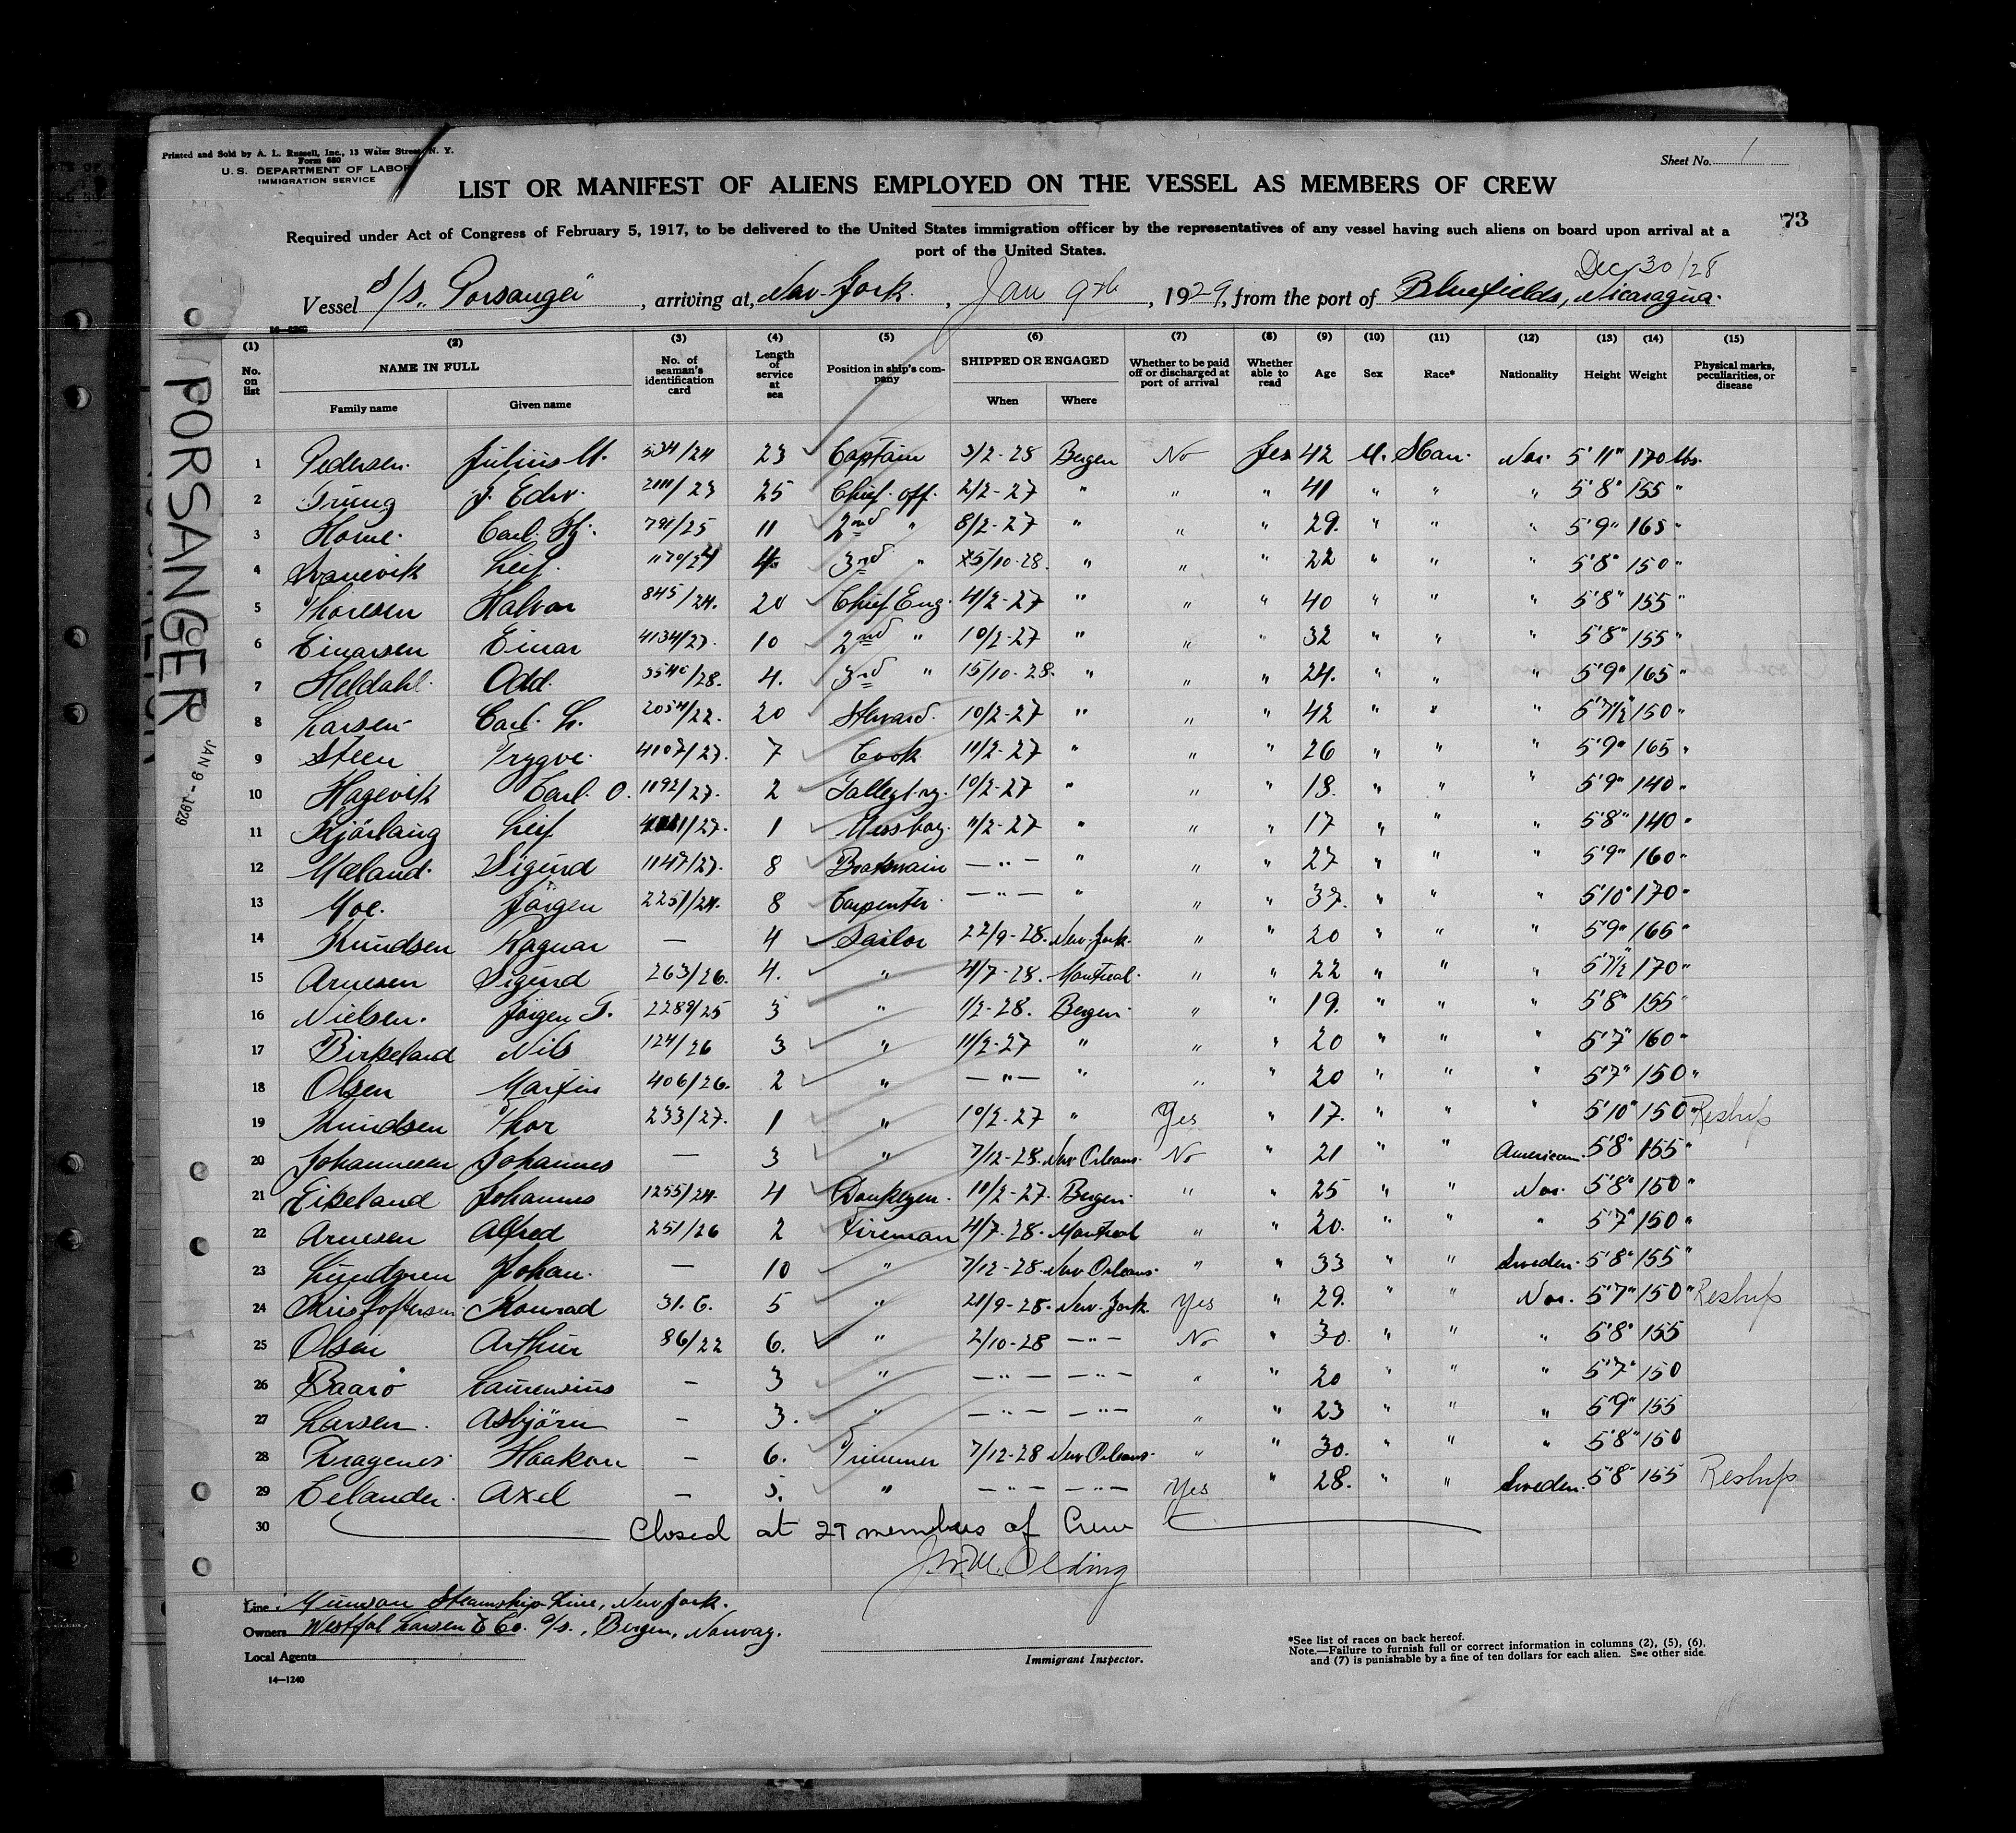 Printed and Sold by A. L. Russell, Inc., 13 Water Street, N. Y.
Form 680
U. S. DEPARTMENT OF LABOR
IMMIGRATION SERVICE
Sheet No. 1
LIST OR MANIFEST OF ALIENS EMPLOYED ON THE VESSEL AS MEMBERS OF CREW
73
Required under Act of Congress of February 5, 1917, to be delivered to the United States immigration officer by the representatives of any vessel having such aliens on board upon arrival at a
port of the United States.
Dec 30/28
Vessel S/S. "Porsanger", arriving at, New-York, Jan 9th, 1929, from the port of Bluefields, Nicaragua.
(1) (2) (3) (4) (5) (6) (7) (8) (9) (10) (11) (12) (13) (14) (15)
No. on list NAME IN FULL Family name Given name No. of seaman's identification card Length of service at sea Position in ship's company SHIPPED OR ENGAGED When Where Whether to be paid off or discharged at port of arrival Whether able to read Age Sex Race* Nationality Height Weight Physical marks, peculiarities, or disease
PORSANGER
JAN 9 - 1929
1 Pedersen. Julius M. 534/24 23 Captain 3/2-28 Bergen No Yes 42 M. Scan. Nor. 5'11" 170 lbs.
2 J. Edw. 25 Chief. off. 2/2-27 " " " 41 " " " 5'8" 155 "
3 Carl. 791/25 11 2nd " 8/2-27 " " " 29. " " " 5'9" 165 "
4 Svanevik Leif. 1170/24 4. 3rd " 15/10-28. " " " 22 " " " 5'8" 150 "
5 Thoresen Halvor 845/24. 20 Chief Eng. 4/2-27 " " " 40 " " " 5'8" 155 "
6 Einarsen Einar 4134/27. 10 2nd " 10/2-27 " " " 32 " " " 5'8" 155 "
7 Heldahl. Odd. 3540/28. 4. 3rd " 15/10-28. " " " 24. " " " 5'9" 165 "
8 Larsen Carl. L. 2054/22. 20 Steward. 10/2-27 " " " 42 " " " 5'7½ 150 "
9 Steen Trygve. 4107/27. 7 Cook 11/2-27 " " " 26 " " " 5'9" 165 "
10 Hagevik Carl. O. 1192/27. 2 10/2-27 " " " 18. " " " 5'9" 140 "
11 Kjörlaug Leif 1 Messboy. 11/2-27 " " " 17 " " " 5'8" 140 "
12 Mæland. Sigurd 1147/27. 8 Boatswain — " — " " " 27 " " " 5'9" 160 "
13 Moe. Jörgen 2251/24. 8 Carpenter. — " — " " " 37. " " " 5'10" 170 "
14 Knudsen Ragnar — 4 Sailor 22/9-28. New-York. " " 20 " " " 5'9" 165 "
15 Arnesen Sigurd 263/26. 4. " 4/7-28. Montreal. " " 22 " " " 5'7½" 170 "
16 Nielsen. Jörgen T. 2289/25 3 " 1/2-28. Bergen. " " 19. " " " 5'8" 155 "
17 Birkeland Nils 124/26 3 " 11/2-27 " " " 20 " " " 5'7" 160 "
18 Olsen Martin 406/26. 2 " — " — " " " 20 " " " 5'7" 150 "
19 Knudsen Thor 233/27. 1 " 10/2-27 " Yes " 17. " " " 5'10" 150 " Reships
20 Johannesen Johannes — 3 " 7/12-28. New Orleans. No " 21 " " American. 5'8" 155 "
21 Eikeland Johannes 1255/24. 4 Donkeym. 10/2-27. Bergen. " " 25 " " Nor. 5'8" 150 "
22 Arnesen Alfred 251/26 2 Fireman 4/7-28. Montreal " " 20. " " " 5'7" 150 "
23 Lundgren Johan. — 10 " 7/12-28. New Orleans. " " 33 " " Sweden. 5'8" 155 "
24 Kristoffersen Konrad 31. 6. 5 " 21/9-28. New-York. Yes " 29. " " Nor. 5'7" 150 " Reships
25 Olsen Arthur 86/22 6. " 2/10-28 — " — No " 30. " " " 5'8" 155
26 Baarö Laurensius — 3 " — " — — " — " " 20 " " " 5'7" 150
27 Larsen. Asbjörn — 3. " — " — — " — " " 23 " " " 5'9" 155
28 Haakon — 6. Trimmer 7/12-28 New Orleans. " " 30. " " " 5'8" 150
29 Celander. Axel — 5. " — " — — " — Yes " 28. " " Sweden. 5'8" 155 Reships
30 Closed at 29 members of Crew
J. W. M. Olding
Line: Munson Steamship Line, New York.
Owners Westfal Larsen & Co. A/S., Bergen, Norway.
Local Agents
Immigrant Inspector.
*See list of races on back hereof.
Note.—Failure to furnish full or correct information in columns (2), (5), (6),
and (7) is punishable by a fine of ten dollars for each alien. See other side.
14—1240